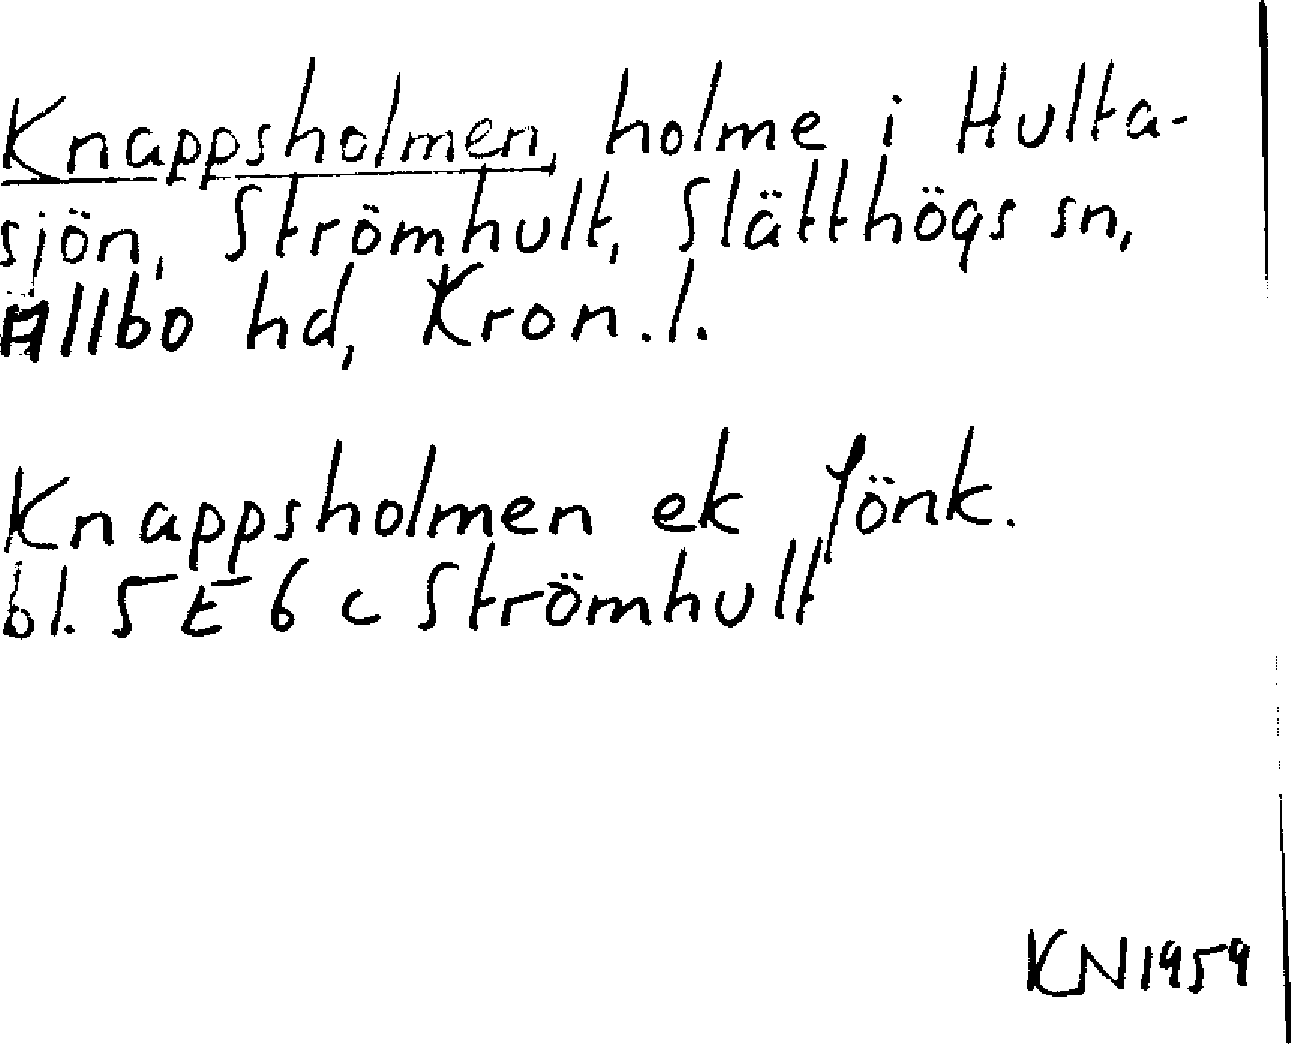 Knappsholmen, holme i Hulta-
sjön, Strömhult, Slätthögs sn,
Allbo hd, Kron.l.
Knappsholmen ek Jönk.
bl. 5 E 6 c Strömhult
KN 1959